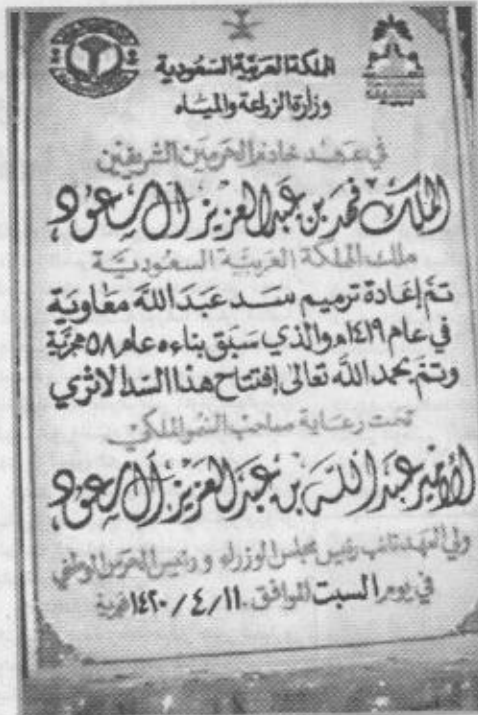 المملكة العربية السعودية
وزارة الزراعة والمياه
في عهد خادم الحرمين الشريفين
الملك فهد بن عبد العزيز آل سعود
ملك المملكة العربية السعودية
تم إعادة ترميم سد عبد الله معاوية
في عام ١٤١٩هـ والذي سبق بناءه عام ٥٨ هجرية
وتم بحمد الله تعالى إفتتاح هذا السد الاثري
تحت رعاية صاحب السمو الملكي
الأمير عبد الله بن عبد العزيز آل سعود
ولي العهد نائب رئيس مجلس الوزراء ورئيس الحرس الوطني
في يوم السبت الموافق ١٤٢٠/٤/١١ هجرية